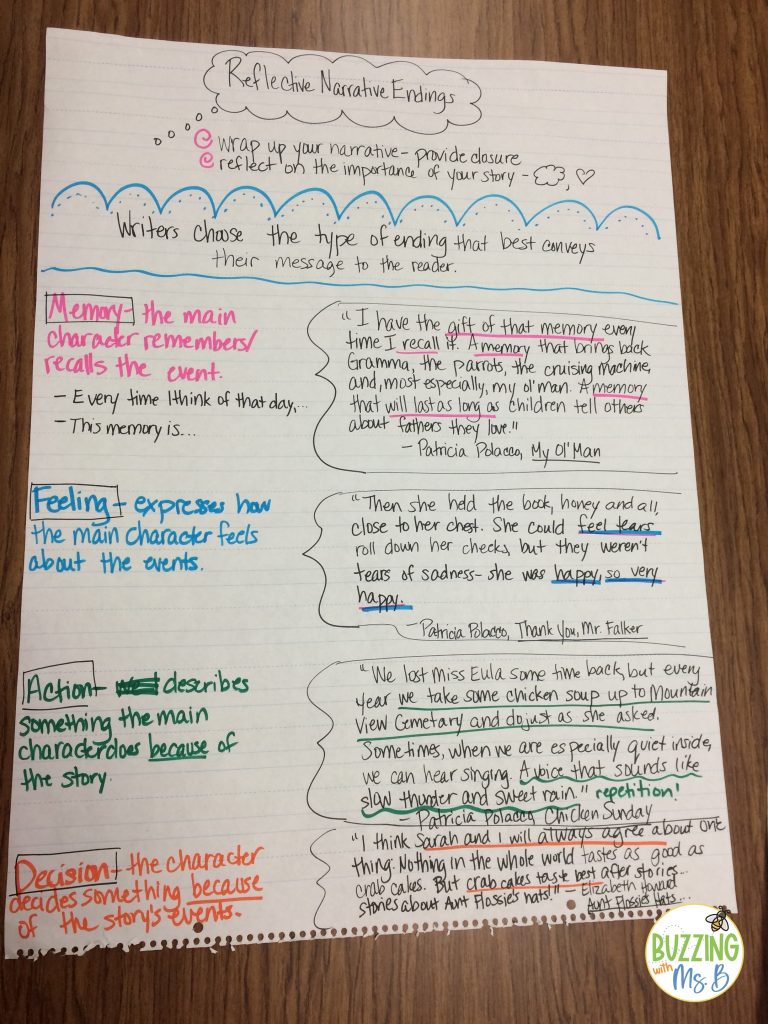 Reflective Narrative Endings
wrap up your narrative - provide closure
reflect on the importance of your story -
Writers choose the type of ending that best conveys
their message to the reader.
Memory - the main
character remembers/
recalls the event.
- Every time I think of that day,...
- This memory is...
"I have the gift of that memory every
time I recall it. A memory that brings back
Gramma, the parrots, the cruising machine,
and, most especially, my ol' man. A memory
that will last as long as children tell others
about fathers they love."
- Patricia Polacco, My Ol' Man
Feeling - expresses how
the main character feels
about the events.
"Then she held the book, honey and all,
close to her chest. She could feel tears
roll down her checks, but they weren't
tears of sadness - she was happy, so very
happy.
- Patricia Polacco, Thank You, Mr. Falker
Action - describes
something the main
character does because of
the story.
"We lost Miss Eula some time back, but every
year we take some chicken soup up to Mountain
View Cemetary and do just as she asked.
Sometimes, when we are especially quiet inside,
we can hear singing. A voice that sounds like
slow thunder and sweet rain." repetition!
- Patricia Polacco, Chicken Sunday
Decision - the character
decides something because
of the story's events.
"I think Sarah and I will always agree about one
thing: Nothing in the whole world tastes as good as
crab cakes. But crab cakes taste best after stories...
stories about Aunt Flossie's hats!" - Elizabeth Howard
Aunt Flossie's Hats...
BUZZING
with
Ms. B